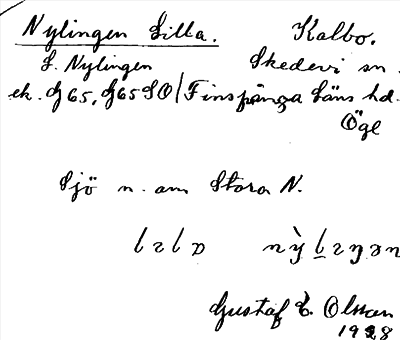 Nylingen Lilla. Kalbo.
L. Nylingen Skedevi sn.
ek. G 65, G65 SO/Finspånga Läns hd.
Ögl
Sjö n. om Stora N.
Gustaf E. Olsson
1928